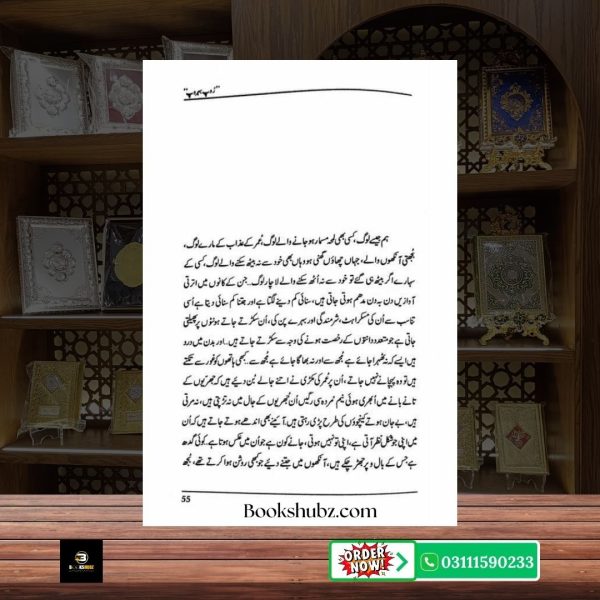 "رُوپ بہروپ"
ہم جیسے لوگ، کسی بھی لمحہ مسمار ہو جانے والے لوگ، عُمر کے عذاب کے مارے لوگ،
بُجھتی آنکھوں والے، جہاں چھاؤں گھنی ہو وہاں بھی خود سے نہ بیٹھ سکنے والے لوگ، کسی کے
سہارے اگر بیٹھ ہی گئے تو خود سے نہ اُٹھ سکنے والے لاچار لوگ۔ جن کے کانوں میں اترتی
آوازیں دن بہ دن مدھم ہوتی جاتی ہیں، سنائی کم دینے لگتا ہے اور جتنا کم سنائی دیتا ہے اُسی
تناسب سے اُن کی مسکراہٹ، شرمندگی اور بہرے پن کی، اُن سکڑتے جاتے ہونٹوں پر پھیلتی
جاتی ہے جو متعدد دانتوں کے رخصت ہونے کی وجہ سے سکڑتے جاتے ہیں... اور بدن میں درد
ہیں ایسے کہ نہ ٹھہرا جائے ہے مُجھ سے اور نہ بھاگا جائے ہے مُجھ سے۔ کبھی ہاتھوں کو غور سے تکتے
ہیں تو وہ پہچانے نہیں جاتے، اُن پر عُمر کی مکڑی نے اتنے جالے بُن دیئے ہیں کہ جھریوں کے
تانے بانے میں اُبھری ہوئی نیم مُردہ سی رگیں اُن جُھریوں کے جال میں نہ تڑپتی ہیں، نہ مرتی
ہیں، بے جان ہوتے کینچوؤں کی طرح پڑی رہتی ہیں، آئینے بھی اندھے ہوتے جاتے ہیں کہ اُن
میں اپنی جو شکل نظر آتی ہے، اپنی تو نہیں ہوتی، جانے کون ہے جو اُن میں عکس ہوتا ہے کوئی گدھ
ہے جس کے بال و پر جھڑ چکے ہیں، آنکھوں میں جتنے دیئے جو کبھی روشن ہوا کرتے تھے، بُجھ
55
Bookshubz.com
ORDER NOW!
03111590233